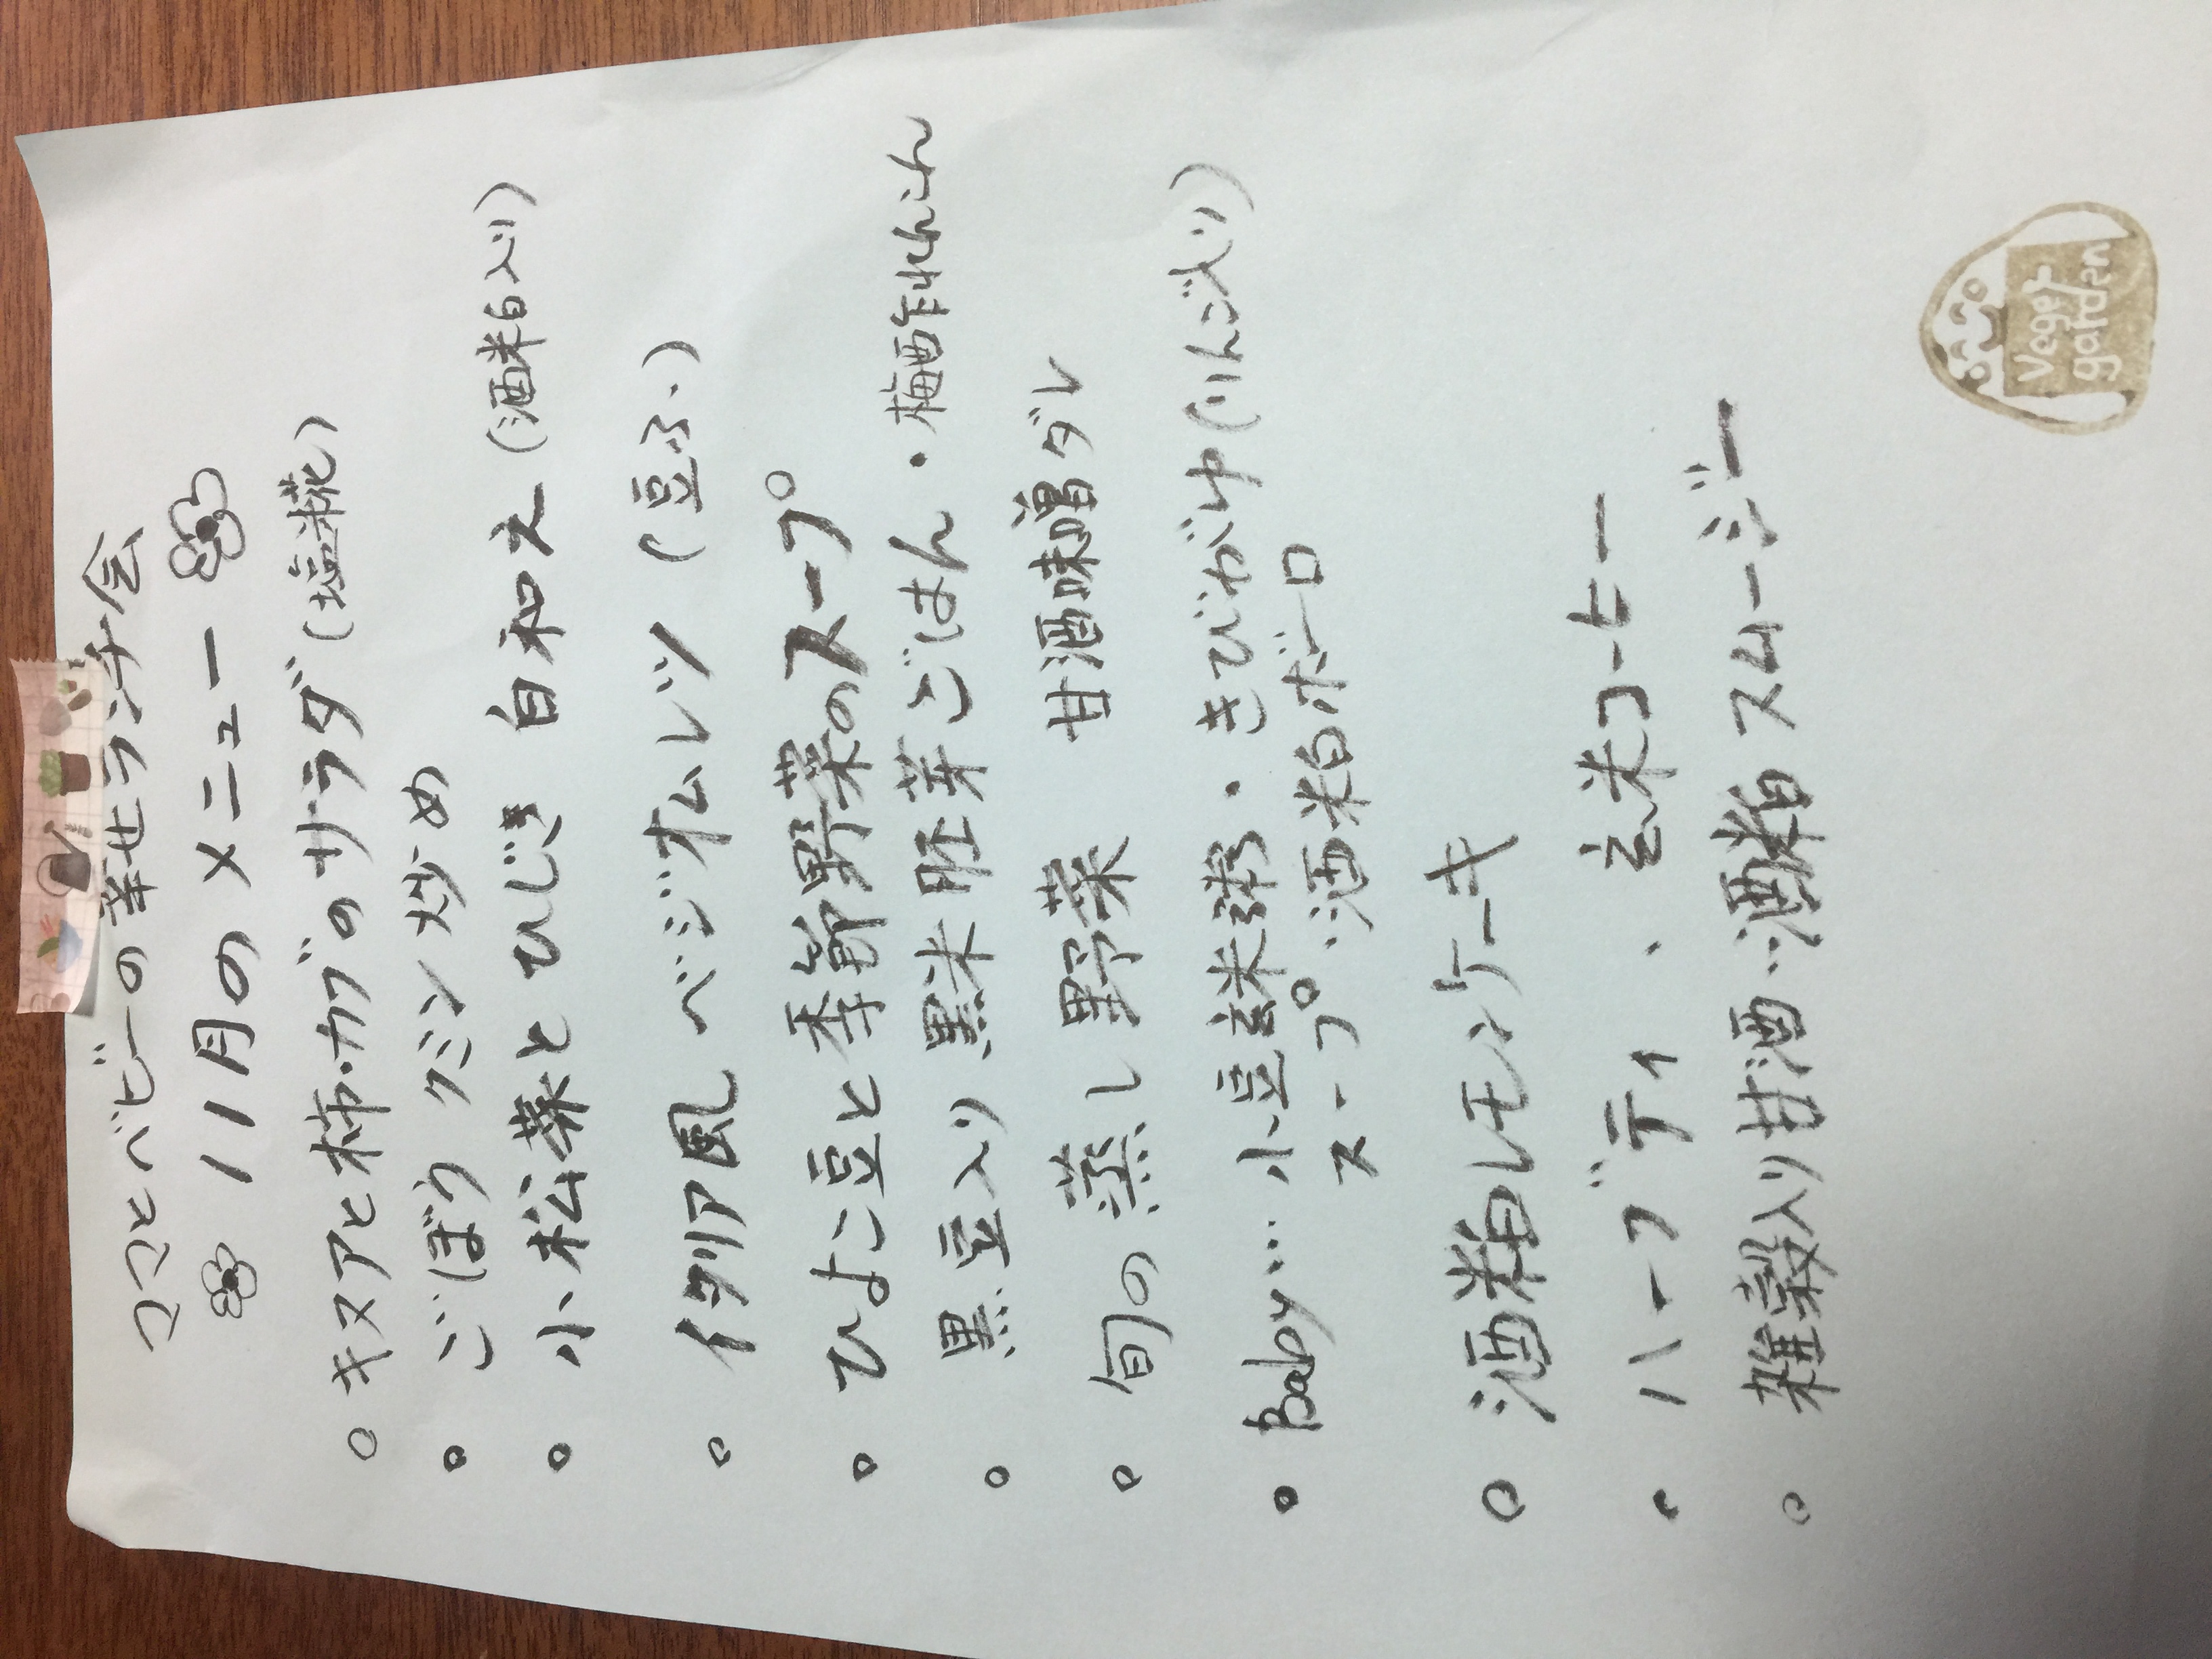 ママとベビーの幸せランチ会
11月のメニュー
○ キヌアと柿・カブのサラダ(塩糀)
○ ごぼう クミン炒め
○ 小松菜と ひじき 白和え(酒粕入り)
○ イタリア風 ベジオムレツ (豆ふ)
○ ひよこ豆と季節野菜のスープ
○ 黒豆入り 黒米胚芽ごはん・梅酢れんこん
○ 旬の 蒸し野菜 甘酒味噌ダレ
○ Baby… 小豆玄米粥・きびがゆ(りんご入り)
スープ・酒粕ボーロ
○ 酒粕レモンケーキ
○ ハーブティ、玄米コーヒー
○ 雑穀入り甘酒・酒粕スムージー
Vege
garden